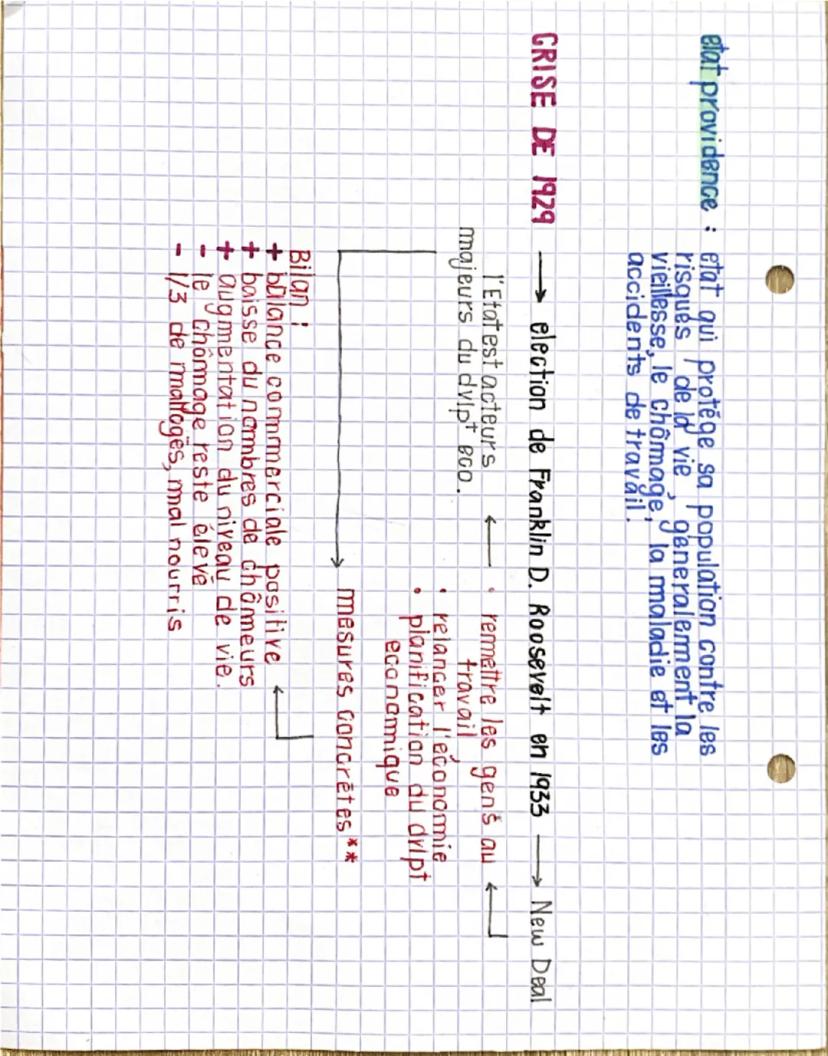 etat providence : etat qui protège sa population contre les
risques de la vie, generalement la
vieillesse, le chômage, la maladie et les
accidents de travail.
CRISE DE 1929 → election de Franklin D. Roosevelt en 1933 → New Deal
l'Etat est acteurs
majeurs du dvlpt eco.
←
• remettre les gens au
travail
• relancer l'économie
• planification du dvlpt
economique
mesures concrètes **
Bilan :
+ balance commerciale positive
+ baisse du nombres de chômeurs
+ augmentation du niveau de vie.
- le chômage reste élevé
- 1/3 de mallogés, mal nourris